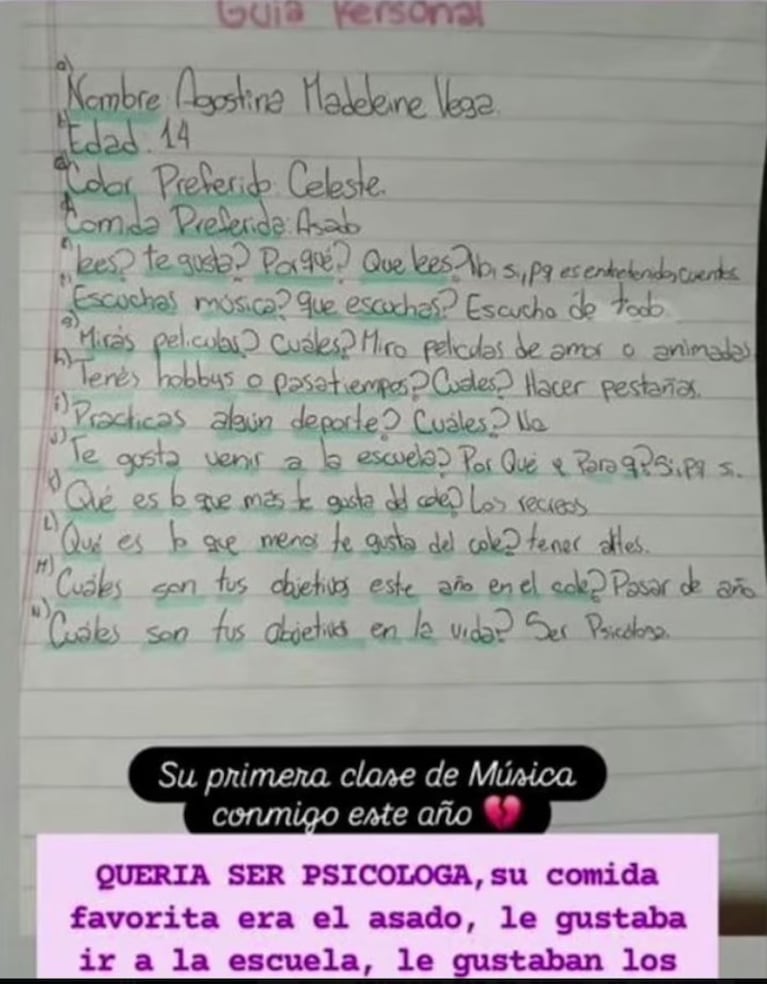 Guía Personal
a) Nombre: Agostina Madeleine Vega.
b) Edad: 14
c) Color Preferido: Celeste.
d) Comida Preferida: Asado
e) lees? te gusta? Por qué? Que lees? No, si, pq es entretenido, cuentos
f) Escuchas música? que escuchas? Escucho de todo.
g) Mirás películas? Cuáles? Miro películas de amor o animadas
h) Tenés hobbys o pasatiempos? Cuales? Hacer pestañas.
i) Practicas algún deporte? Cuáles? No
J) Te gusta venir a la escuela? Por Qué y Para q? Si, pq si.
K) Qué es lo que más te gusta del cole? Los recreos
L) Qué es lo que menos te gusta del cole? tener altes.
M) Cuáles son tus objetivos este año en el cole? Pasar de año
N) Cuáles son tus objetivos en la vida? Ser Psicóloga.
Su primera clase de Música
conmigo este año 💔
QUERIA SER PSICOLOGA, su comida
favorita era el asado, le gustaba
ir a la escuela, le gustaban los